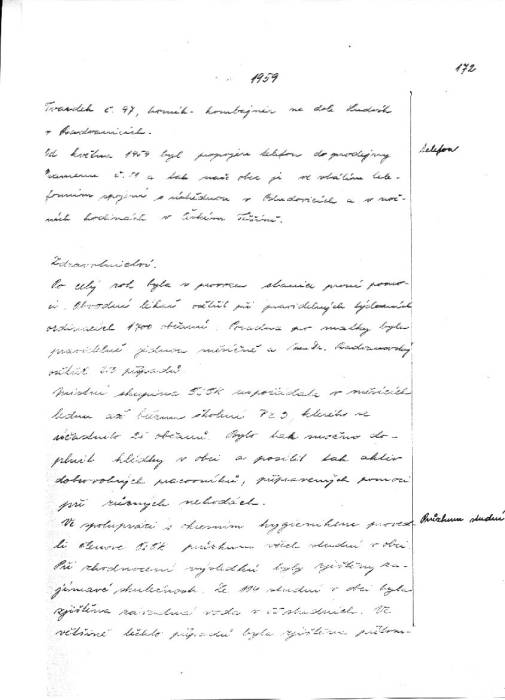 172
1959
č. 97, horník - kombajnér na dole Ludvík
v Radvanicích.
Od května 1959 byl propojen telefon do prodejny
telefon
č. a tak naše obec je ve stálém tele-
fonním spojení s v a v noč-
ních hodinách v Českém Těšíně.
Zdravotnictví.
Po celý rok byla v provozu stanice první pomo-
ci. Obvodní lékař ošetřil při pravidelných týdenních
ordinacích 1700 občanů. Poradna pro matky byla
pravidelně jednou měsíčně a
případů.
Místní skupina ČSČK uspořádala v měsících
lednu až březnu školení kterého se
zúčastnilo občanů. Bylo tak možno do-
plnit hlídky v obci a posílit tak aktiv
dobrovolných pracovníků, připravených pomoci
při různých nehodách.
Ve spolupráci s okresním hygienikem proved-
Průzkum studní
li členové ČSČK průzkum všech studní v obci.
Při zhodnocení výsledků byly zjištěny za-
jímavé skutečnosti. Ze studní v obci byla
zjištěna závadná voda v studních. Ve
většině těchto případů byla zjištěna přítom-